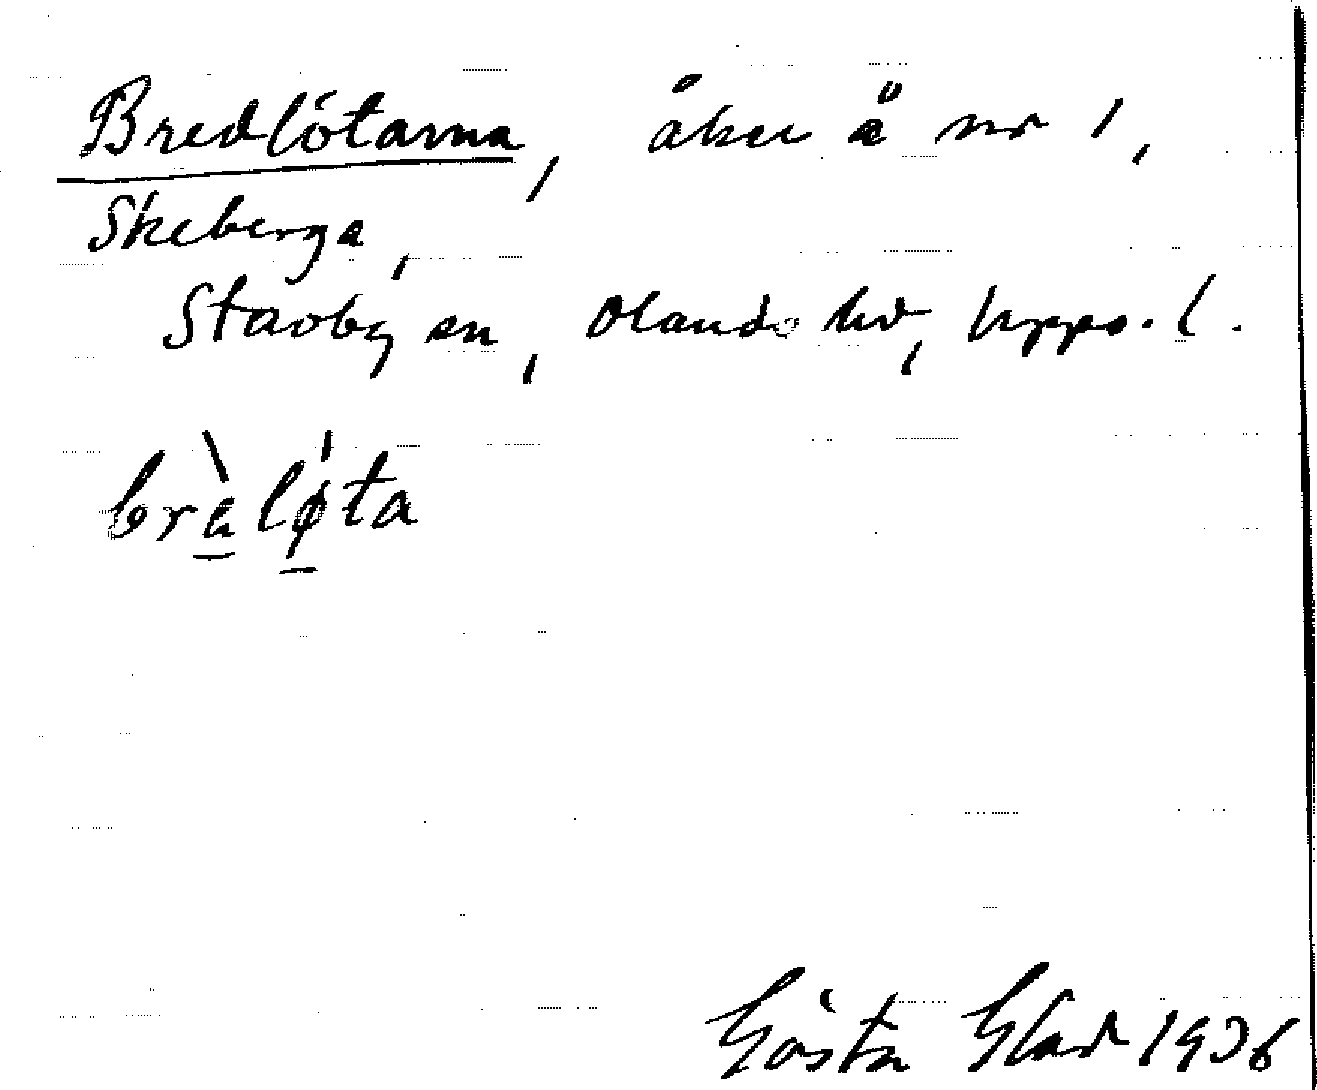 Bredlötarna, åker å nr 1,
Skeberga,
Stavby sn, Olands hd, Upps. l.
bràlǿta
Gösta Glad 1936